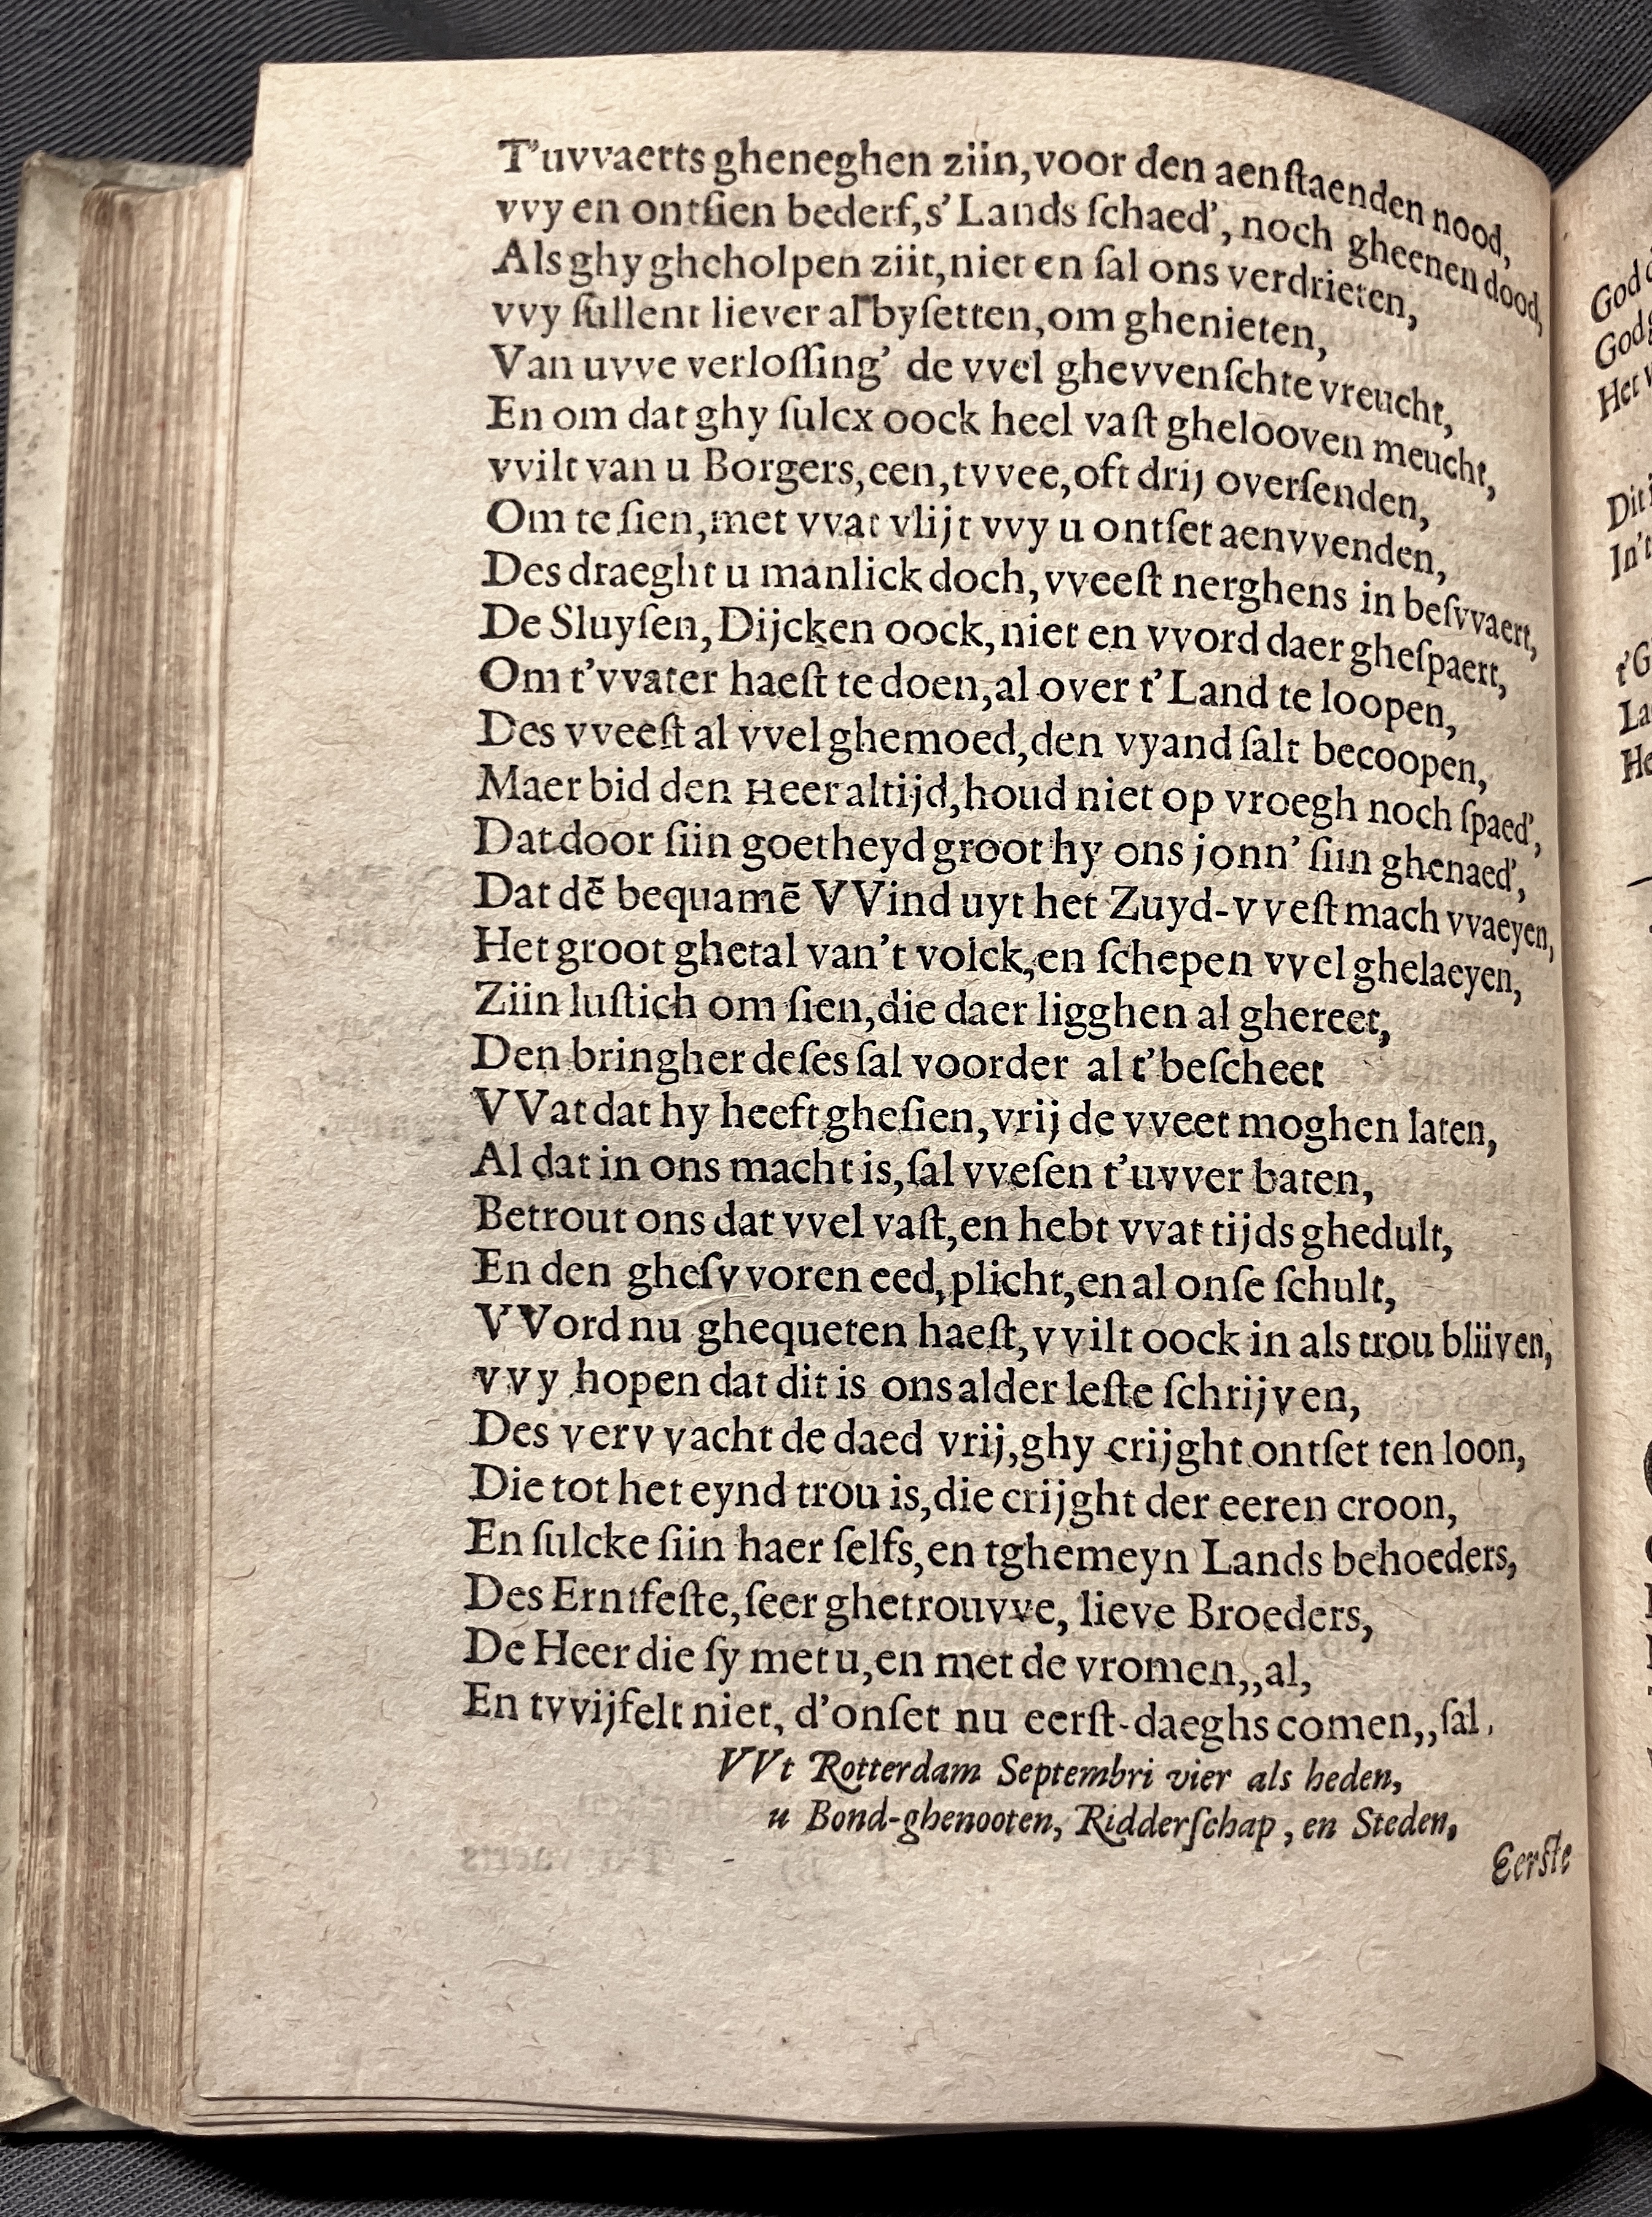 T'uvvaerts gheneghen ziin, voor den aenſtaenden nood,
vvy en ontſien bederf, s'Lands ſchaed', noch gheenen dood,
Als ghy gheholpen ziit, niet en ſal ons verdrieten,
vvy ſullent liever al byſetten, om ghenieten,
Van uvve verloſſing' de vvel ghevvenſchte vreucht,
En om dat ghy ſulcx oock heel vaſt ghelooven meucht,
vvilt van u Borgers, een, tvvee, oft drij overſenden,
Om te ſien, met vvat vlijt vvy u ontſet aenvvenden,
Des draeght u manlick doch, vveeſt nerghens in beſvvaert,
De Sluyſen, Dijcken oock, niet en vvord daer gheſpaert,
Om t'vvater haeſt te doen, al over t'Land te loopen,
Des vveeſt al vvel ghemoed, den vyand ſalt becoopen,
Maer bid den Heer altijd, houd niet op vroegh noch ſpaed',
Dat door ſiin goetheyd groot hy ons jonn' ſiin ghenaed',
Dat dē bequamē VVind uyt het Zuyd-vveſt mach vvaeyen,
Het groot ghetal van't volck, en ſchepen vvel ghelaeyen,
Ziin luſtich om ſien, die daer ligghen al ghereet,
Den bringher deſes ſal voorder al t'beſcheet
VVat dat hy heeft gheſien, vrij de vveet moghen laten,
Al dat in ons macht is, ſal vveſen t'uvver baten,
Betrout ons dat vvel vaſt, en hebt vvat tijds ghedult,
En den gheſvvoren eed, plicht, en al onſe ſchult,
VVord nu ghequeten haeſt, vvilt oock in als trou bliiven,
vvy hopen dat dit is ons alder leſte ſchrijven,
Des vervvacht de daed vrij, ghy crijght ontſet ten loon,
Die tot het eynd trou is, die crijght der eeren croon,
En ſulcke ſiin haer ſelfs, en tghemeyn Lands behoeders,
Des Erntfeſte, ſeer ghetrouvve, lieve Broeders,
De Heer die ſy met u, en met de vromen,, al,
En tvvijfelt niet, d'onſet nu eerſt-daeghs comen,, ſal.
VVt Rotterdam Septembri vier als heden,
u Bond-ghenooten, Ridderſchap, en Steden,
Eerſte